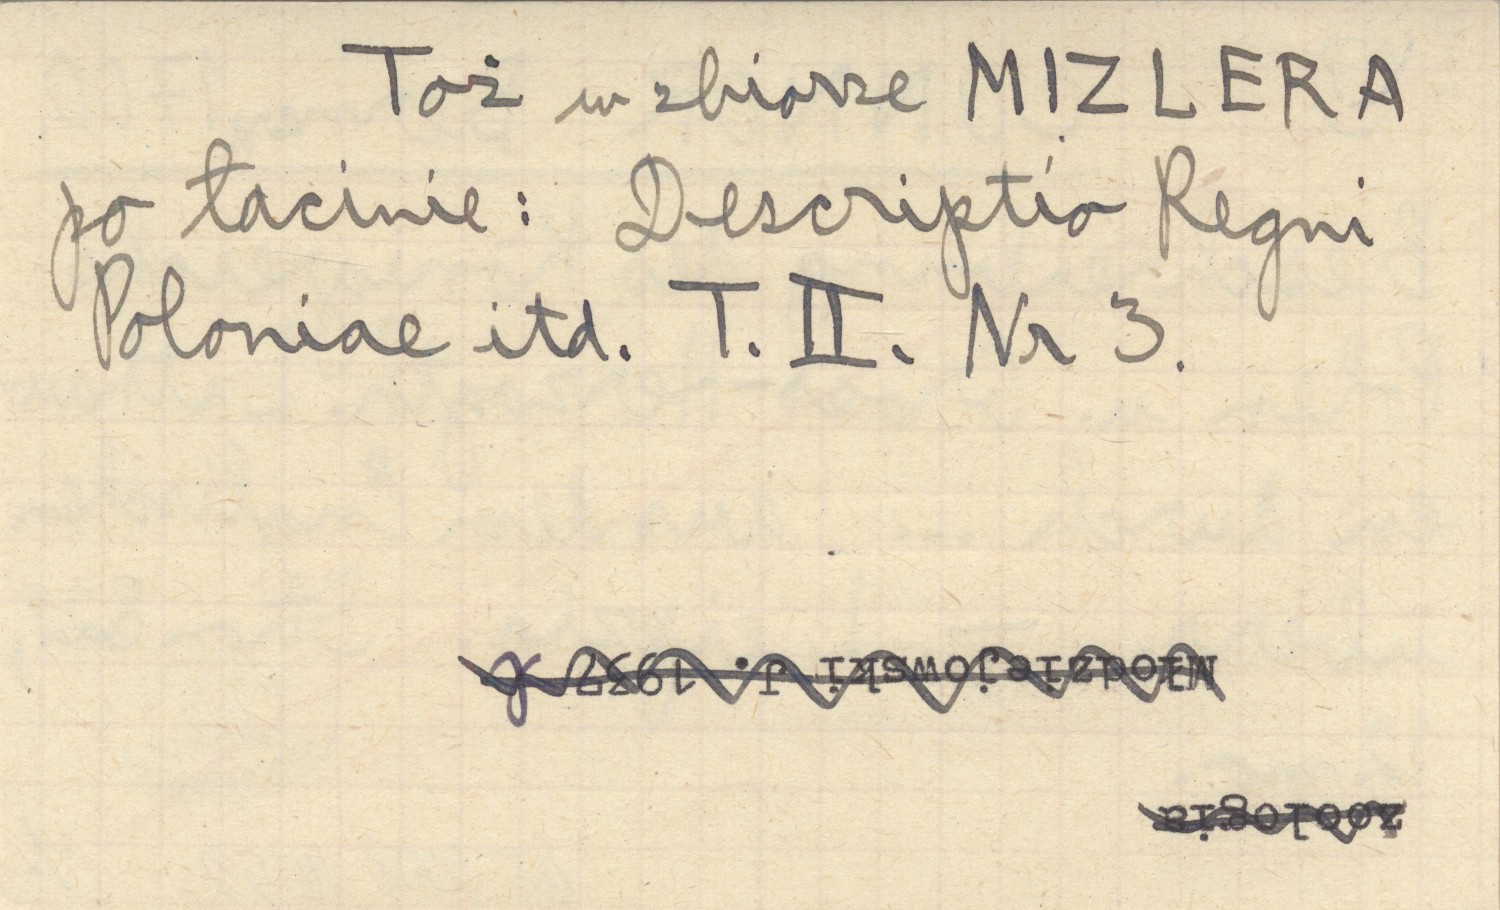 Toż w zbiorze MIZLERA
po łacinie: Descriptio Regni
Poloniae itd. T. II. Nr 3.
Młodziejowski J. 1937
zoologia